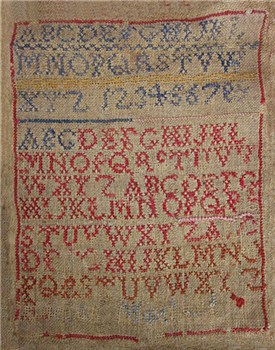 ABCDEFGHIJKL
MNOPQRSTUVW
XYZ 12345678
ABCDEFGHIJKL
MNOPQRSTUVW
WXYZ ABCDEFG
HIJKLMNOPQR
STUVWXYZ A
HIJKLMN
PQRSTUVWXYZ